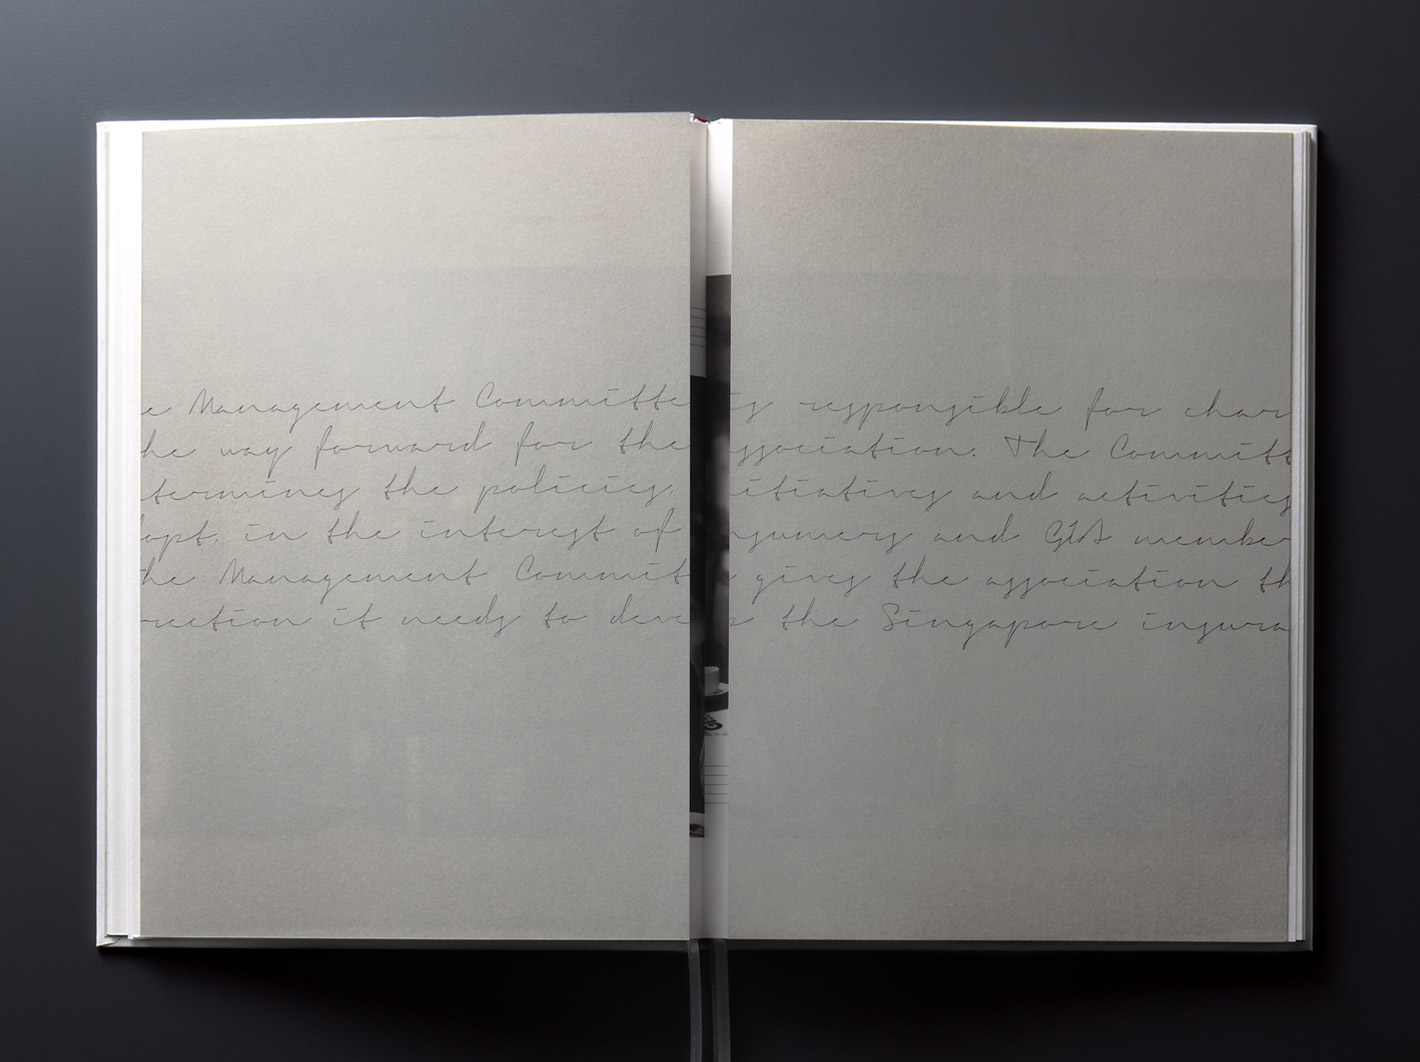 e Management Committe is responsible for char
he way forward for the ssociation. The Committ
termines the policies, itiatives and activities
opt, in the interest of nsumers and GIA member
he Management Commit gives the association th
rection it needs to deve p the Singapore insura